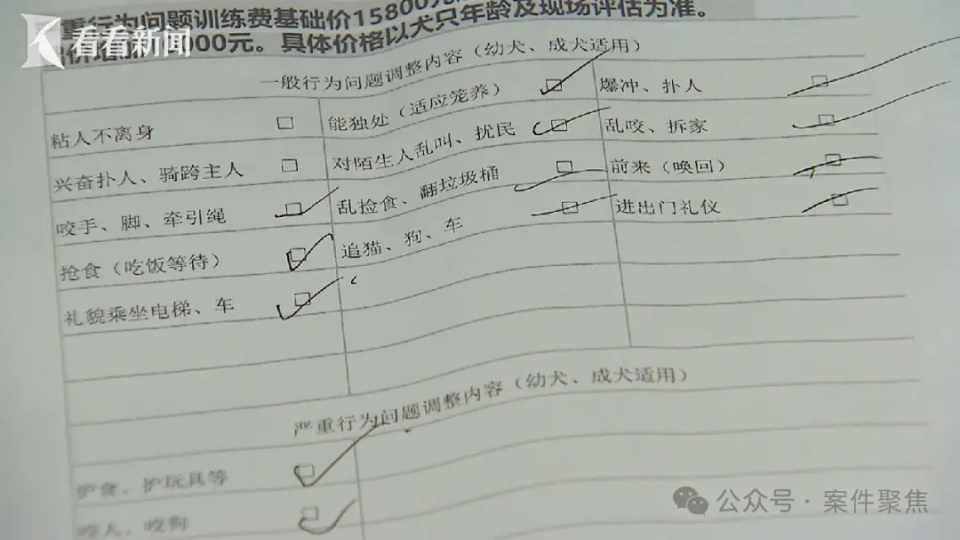 重行为问题训练费基础价15800元
看看新闻
000元。具体价格以犬只年龄及现场评估为准。
一般行为问题调整内容（幼犬、成犬适用）
粘人不离身 □ 能独处（适应笼养） □ 爆冲、扑人 □
兴奋扑人、骑跨主人 □ 对陌生人乱叫、扰民 □ 乱咬、拆家 □
咬手、脚、牵引绳 □ 乱捡食、翻垃圾桶 □ 前来（唤回） □
抢食（吃饭等待） □ 追猫、狗、车 □ 进出门礼仪 □
礼貌乘坐电梯、车 □
严重行为问题调整内容（幼犬、成犬适用）
护食、护玩具等 □
咬人、咬狗 □
公众号·案件聚焦